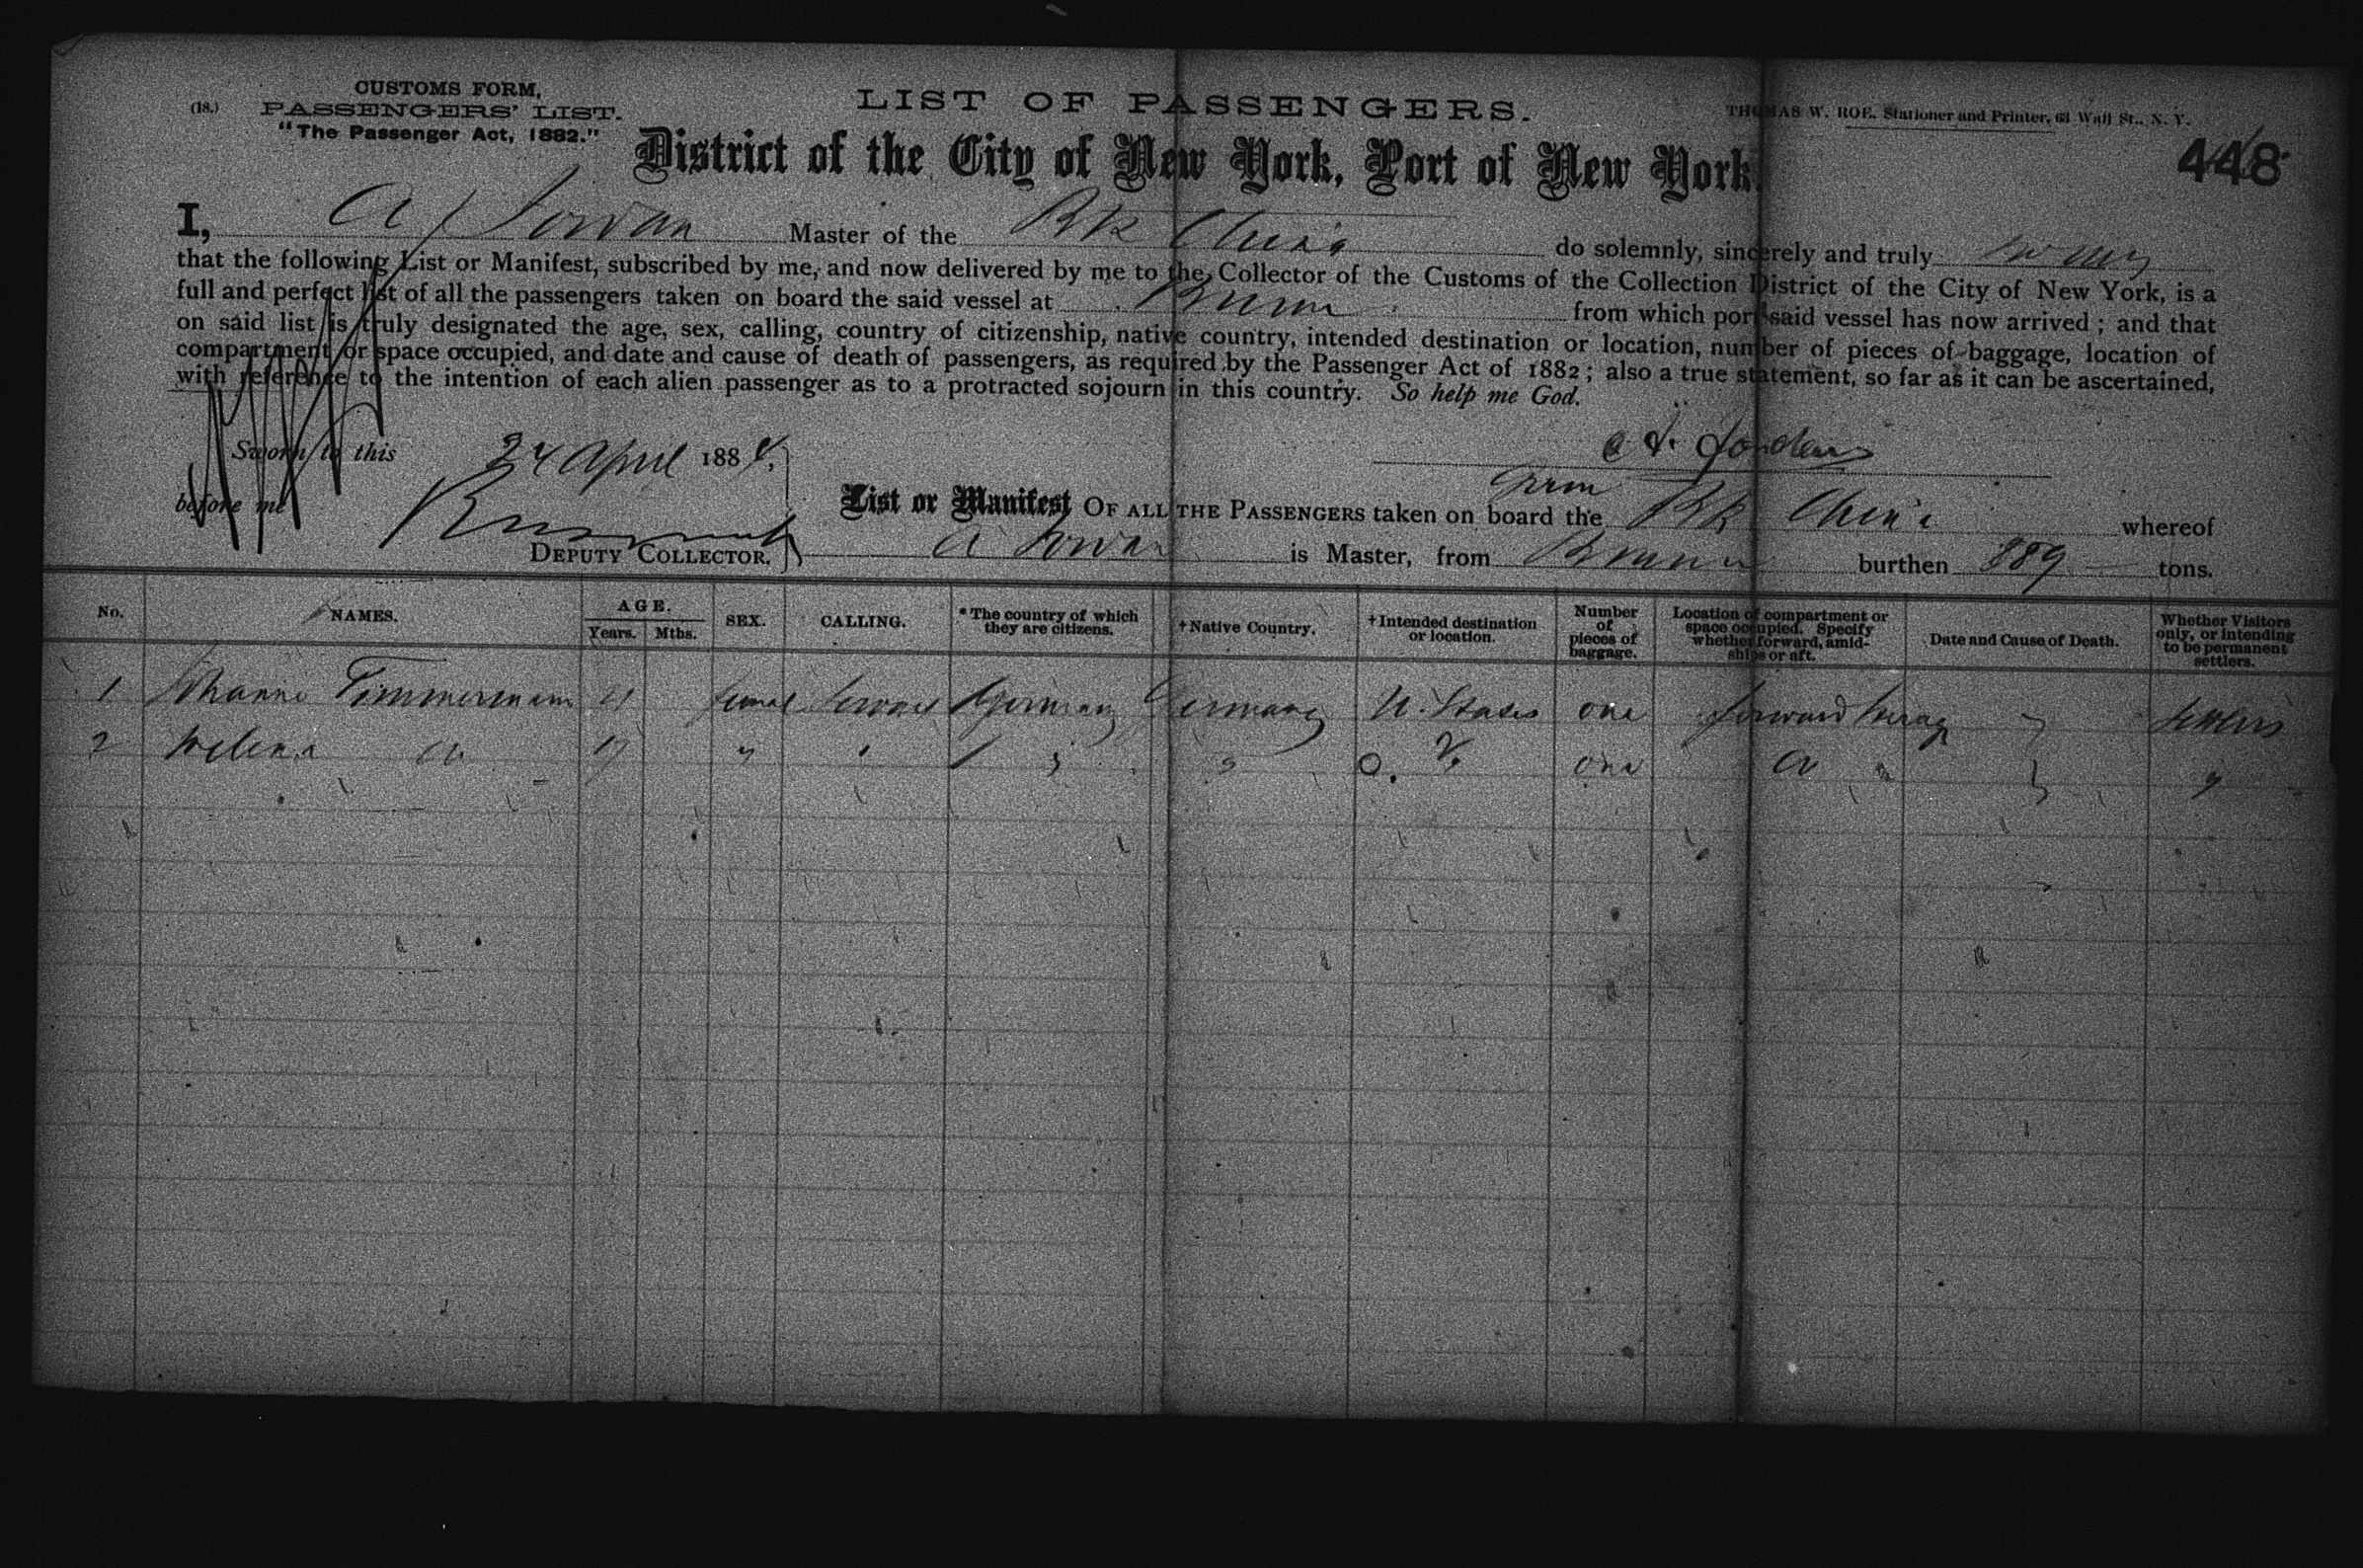 CUSTOMS FORM,
(18.) PASSENGERS' LIST.
"The Passenger Act, 1882."
LIST OF PASSENGERS.
THOMAS W. ROE, Stationer and Printer, 63 Wall St., N. Y.
District of the City of New York, Port of New York
448
I, Master of the Bk China do solemnly, sincerely and truly
that the following List or Manifest, subscribed by me, and now delivered by me to the Collector of the Customs of the Collection District of the City of New York, is a
full and perfect list of all the passengers taken on board the said vessel at from which port said vessel has now arrived; and that
on said list is truly designated the age, sex, calling, country of citizenship, native country, intended destination or location, number of pieces of baggage, location of
compartment or space occupied, and date and cause of death of passengers, as required by the Passenger Act of 1882; also a true statement, so far as it can be ascertained,
with reference to the intention of each alien passenger as to a protracted sojourn in this country. So help me God.
Sworn to this 24 April 1884,
before me
DEPUTY COLLECTOR.
Germ
List or Manifest OF ALL THE PASSENGERS taken on board the Bk China whereof
is Master, from burthen 889 tons.
No. NAMES. AGE. Years. Mths. SEX. CALLING. *The country of which they are citizens. †Native Country. †Intended destination or location. Number of pieces of baggage. Location of compartment or space occupied. Specify whether forward, amidships or aft. Date and Cause of Death. Whether Visitors only, or intending to be permanent settlers.
1 Johanne Timmermann female Servant Germany Germany U. States one forward Settlers
2 Helena " " one "